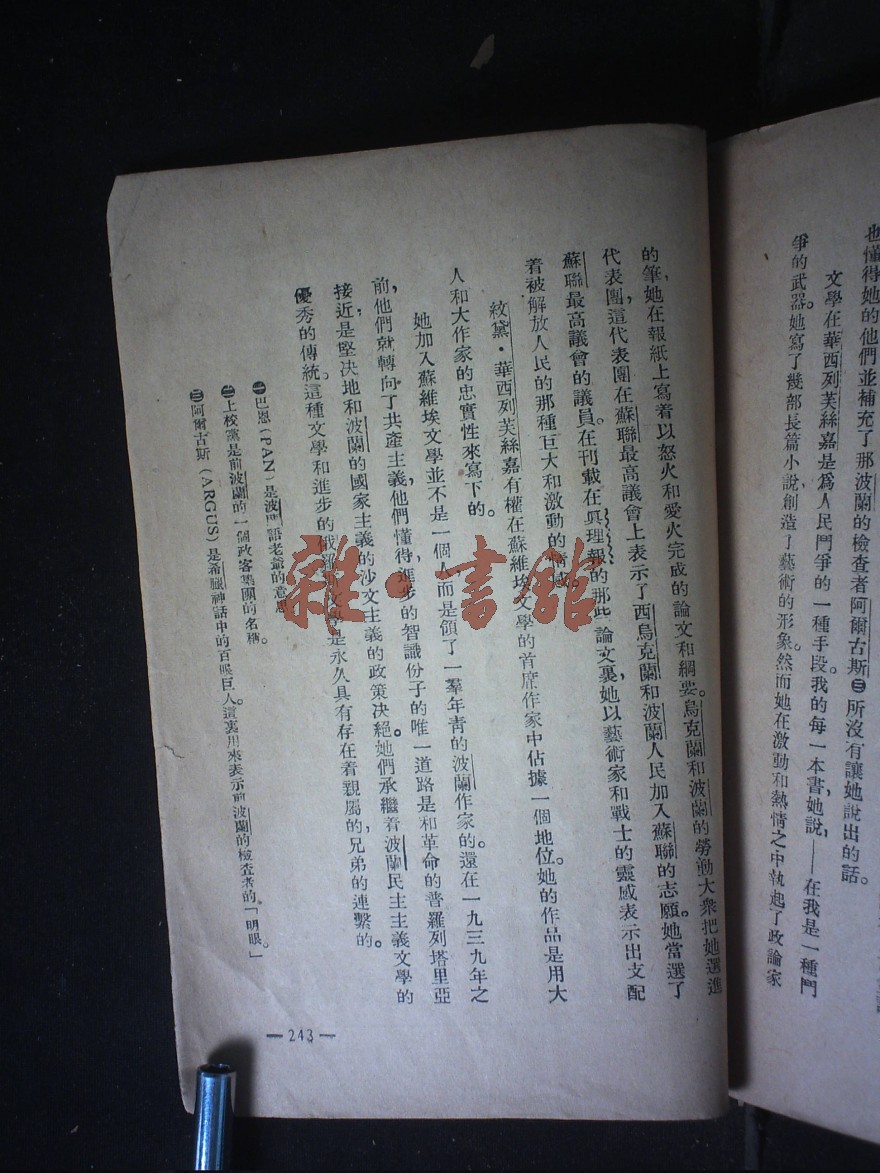 也懂得她的他們並補充了那波蘭的檢查者阿爾古斯㊂所沒有讓她說出的話。
文學在華西列芙絲嘉是爲人民鬥爭的一種手段。我的每一本書,她說,——在我是一種鬥
爭的武器。她寫了幾部長篇小說,創造了藝術的形象。然而她在激動和熱情之中執起了政論家
的筆,她在報紙上寫着以怒火和愛火完成的論文和綱要。烏克蘭和波蘭的勞動大衆把她選進
代表團,這代表團在蘇聯最高議會上表示了西烏克蘭和波蘭人民加入蘇聯的志願。她當選了
蘇聯最高議會的議員。在刊載在眞理報的那些論文裏,她以藝術家和戰士的靈感表示出支配
着被解放人民的那種巨大和激動的情感。
紋黛·華西列芙絲嘉有權在蘇維埃文學的首席作家中佔據一個地位。她的作品是用大
人和大作家的忠實性來寫下的。
她加入蘇維埃文學並不是一個人,而是領了一羣年靑的波蘭作家的。還在一九三九年之
前,他們就轉向了共產主義,他們懂得,進步的智識份子的唯一道路是和革命的普羅列塔里亞
接近,是堅决地和波蘭的國家主義的沙文主義的政策决絕。她們承繼着波蘭民主主義文學的
優秀的傳統。這種文學和進步的俄羅斯文學是永久具有存在着親屬的,兄弟的連繫的。
㊀巴恩(PAN)是波蘭語老爺的意思。
㊁上校黨是前波蘭的一個政客集團的名稱。
㊂阿爾古斯(ARGUS)是希臘神話中的百眼巨人。這裏用來表示前波蘭的檢查者的。「明眼。」
—243—
雜·書館